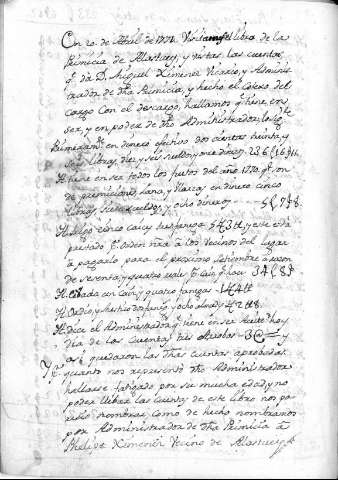 En 20 de Abril de 1771 Visitamos el libro de la
Primicia de Alastuey, y vistas las cuentas
q.e da D. Miguel Ximenez Vicario, y Adminis
trador de dha Primicia, y hecho el cotexo del
cargo con el descargo, hallamos q.e tiene en
ser, y en poder de dho Administrador lo sig.te
Primeram.te en dinero efectivo dos cientas treinta, y
seis libras, diez y seis sueldos, y nueve dineros 236 l 16 s
It. tiene en ser todos los frutos del año 1770 q.e son
de primicias, lana, y en dinero cinco
libras, siete sueldos, y ocho dineros 5 l 7 s 8
It. trigo cinco caices tres fanegas, y este está
prestado de orden nra a los vecinos del lugar
a pagarlo para el proximo Setiembre a razon
de sesenta, y quatro reales el caiz q.e hay 34 l 8 s
It. Cebada un caiz, y quatro fanegas
It. Ordio,
It. Dice el Administrador q.e tiene en ser hoy
dia de las cuentas tres Arrobas 3 @ y
asi quedaron las dhas cuentas aprobadas.
Y por quanto nos represento dho Administrador
hallarse fatigado por su mucha edad, y no
poder llebar las cuentas de este libro nos pa
recio nombrar, como de hecho nombramos
por Administrador de dha Primicia á
Phelipe Ximenez Vecino de Alastuey